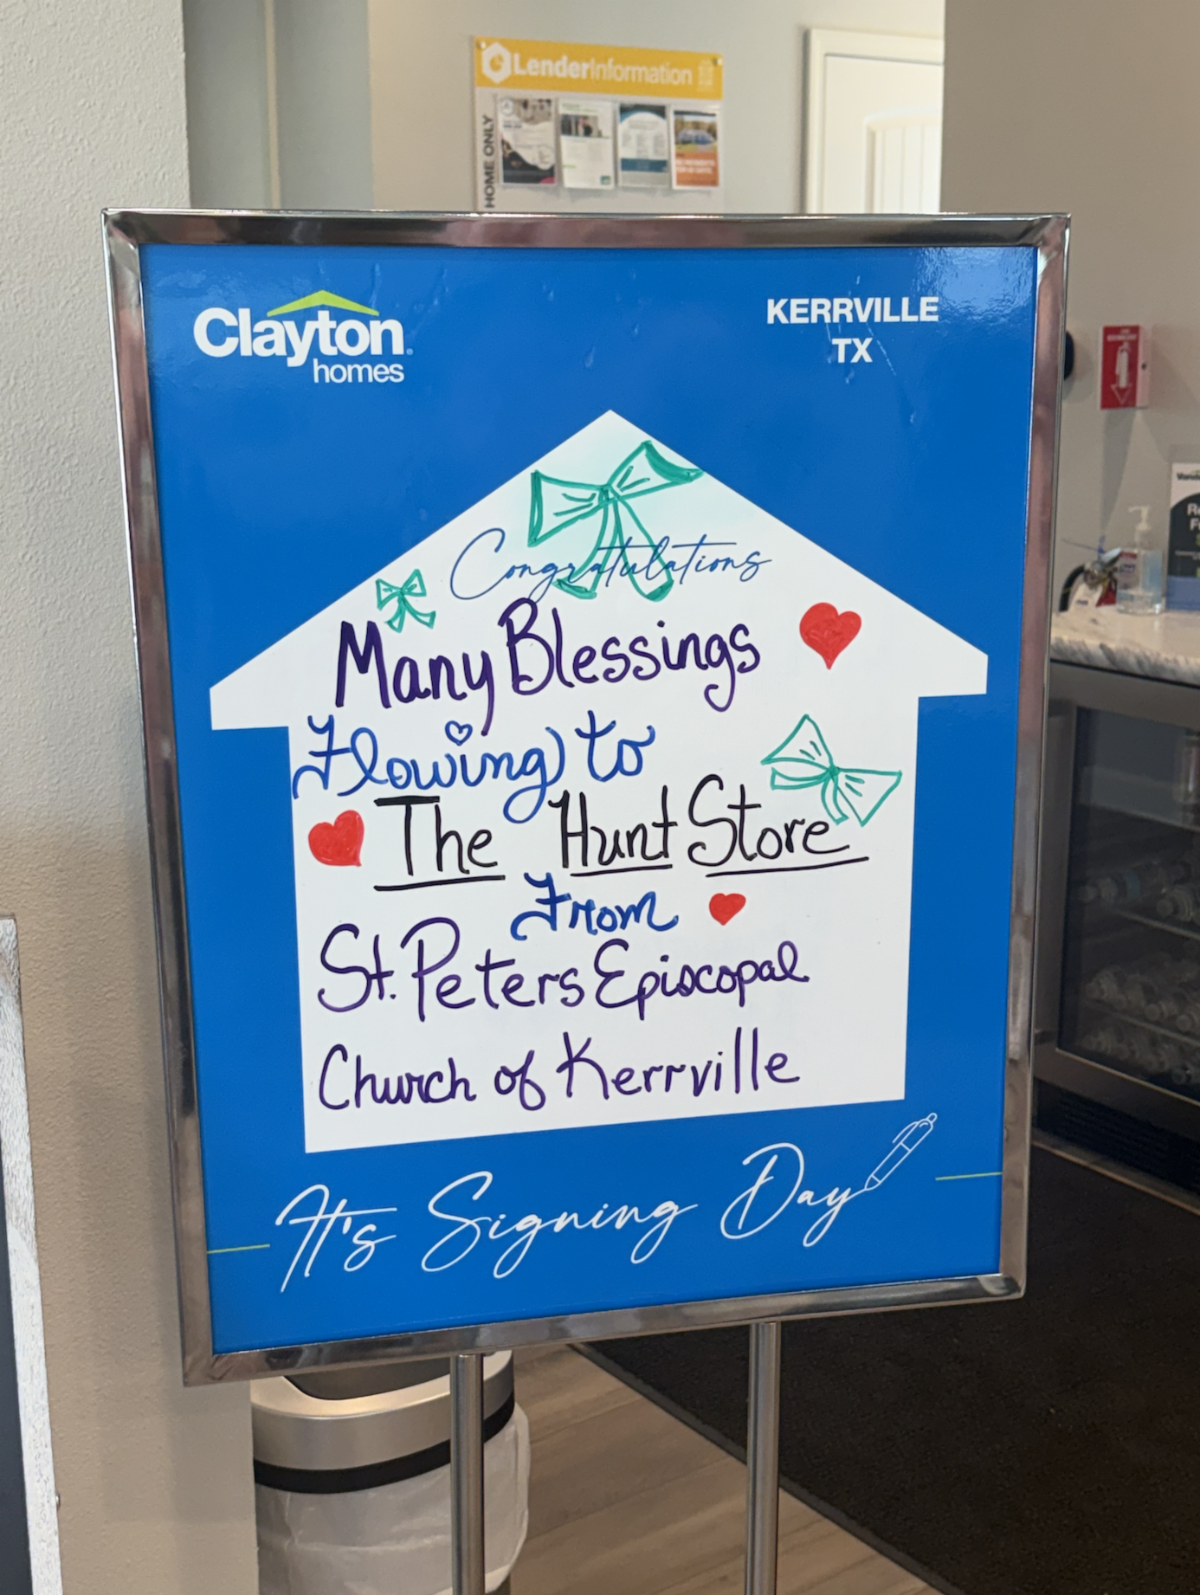 LenderInformation
HOME ONLY
Clayton
homes
KERRVILLE
TX
Congratulations
Many Blessings
Flowing to
The Hunt Store
From
St. Peters Episcopal
Church of Kerrville
It's Signing Day